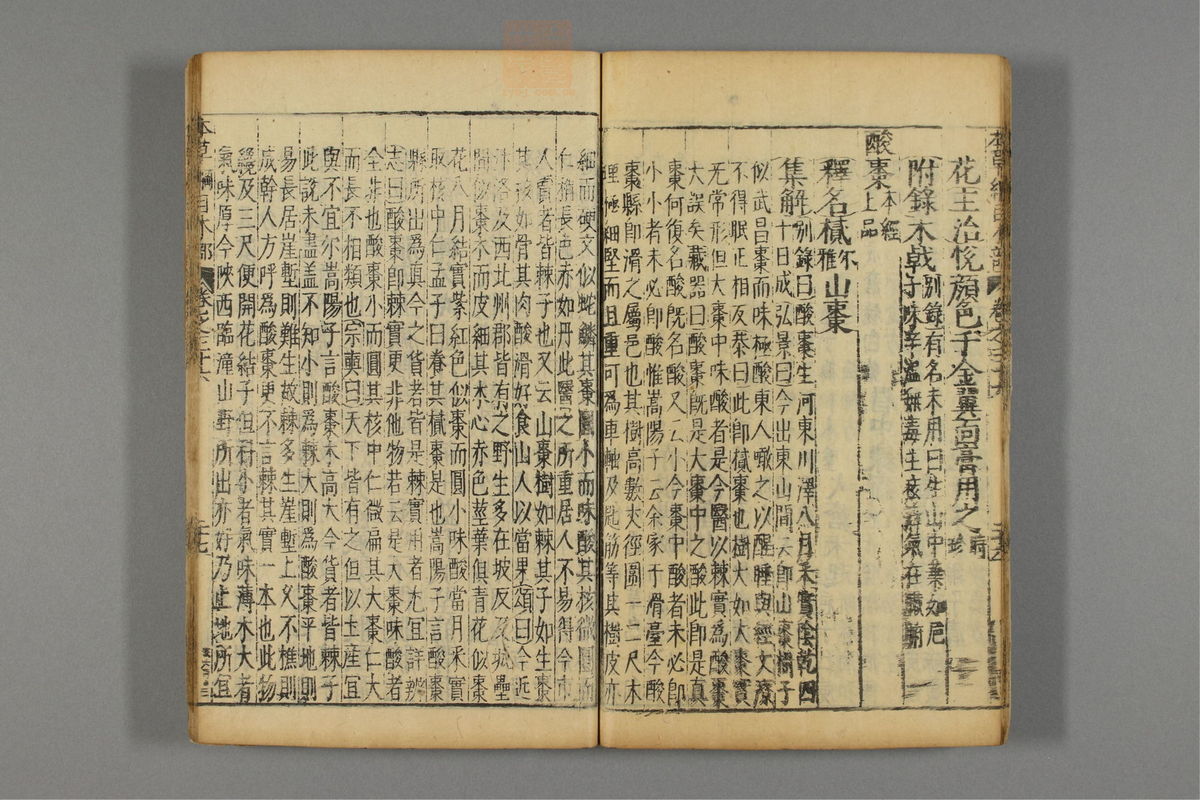 花主治悅顏色千金翼面膏用之時珍
附錄木戟別錄有名未用曰生山中葉如卮
子味辛溫無毒主痃癖氣在臟腑
酸棗本經上品
釋名樲爾雅山棗
集解別錄曰酸棗生河東川澤八月采實陰乾四
十日成弘景曰今出東山間云即山棗樹子
似武昌棗而味極酸東人噉之以醒睡與經文療
不得眠正相反恭曰此即樲棗也樹大如大棗實
无常形但大棗中味酸者是今醫以棘實為酸棗
大誤矣藏器曰酸棗既是大棗中之酸此即是真
棗何復名酸既名酸又云小今棗中酸者未必即
小小者未必即酸惟嵩陽子云余家于滑臺今酸
棗縣即滑之屬邑也其樹高數丈徑圍一二尺木
理極細堅而且重可為車軸及匙筯等其樹皮亦
細而硬文似蛇鱗其棗圓小而味酸其核微圓而
仁稍長色赤如丹此醫之所重居人不易得今市
人賣者皆棘子也又云山棗樹如棘其子如生棗
其核如骨其肉酸滑好食山人以當果頌曰今近
汴洛及西北州郡皆有之野生多在坡坂及城壘
間似棗木而皮細其木心赤色莖葉俱青花似棗
花八月結實紫紅色似棗而圓小味酸當月采實
取核中仁孟子曰養其樲棗是也嵩陽子言酸棗
縣所出為真今之貨者皆是棘實用者尤宜詳辨
志曰酸棗即棘實更非他物若云是大棗味酸者
全非也酸棗小而圓其核中仁微扁其大棗仁大
而長不相類也宗奭曰天下皆有之但以土產宜
與不宜尔嵩陽子言酸棗木高大今貨者皆棘子
此說未盡盖不知小則為棘大則為酸棗平地則
易長居崖塹則難生故棘多生崖塹上久不樵則
成幹人方呼為酸棗更不言棘其實一本也此物
纔及三尺便開花結子但科小者氣味薄木大者
氣味厚今陝西臨潼山野所出亦好乃土地所宜